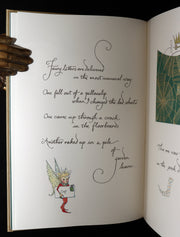 Fairy letters are delivered
in the most unusual way
One fell out of a pillowslip
when I changed the bed sheets
One came up through a crack
in the floorboards
Another raked up in a pile
of
garden
leaves